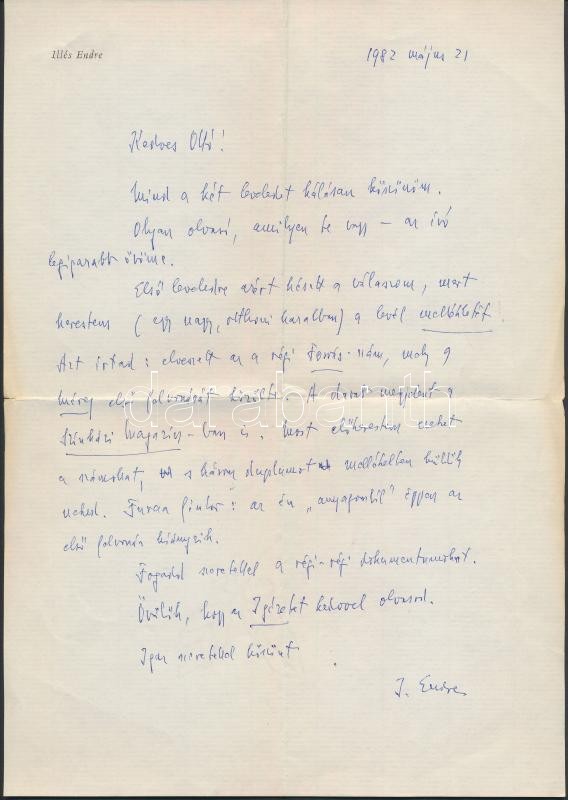 Illés Endre
1982 május 21
Kedves Ottó!
Mind a két leveledet hálásan köszönöm.
Olyan olvasó, amilyen te vagy – az író
legigazabb öröme.
Első leveledre azért késett a válaszom, mert
kerestem (egy nagy, otthoni kazalban) a levél mellékletét.
Azt írtad: elveszett az a régi Forrás-szám, mely a
méreg első felvonását közölte. A darab megjelent a
Színházi Magazin-ban is. Most előkerestem ezeket
a számokat, s három duplumot mellékelten küldök
neked. Furcsa játék: az én "anyagomból" éppen az
első felvonás hiányzik.
Fogadd szeretettel a régi-régi dokumentumokat.
Örülök, hogy az Igézetet kedvvel olvasod.
Igaz szeretettel köszönt
I. Endre
darabanth